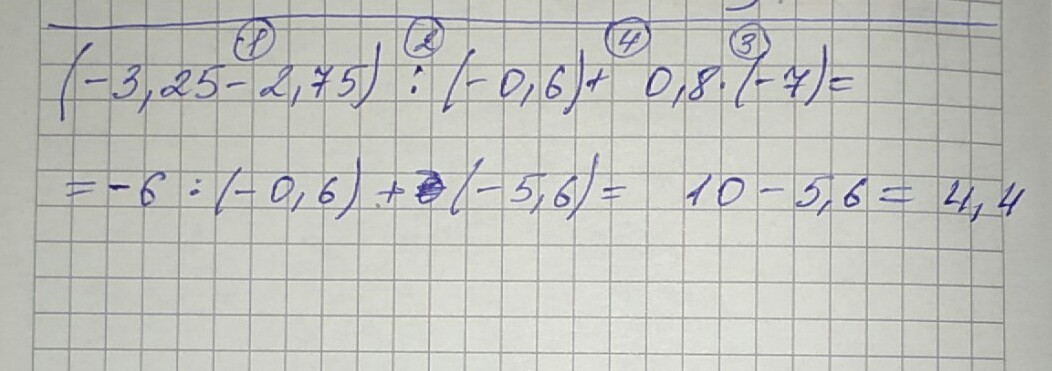 ① ② ④ ③
(-3,25-2,75) : (-0,6)+ 0,8·(-7)=
=-6 : (-0,6) + (-5,6)= 10-5,6= 4,4